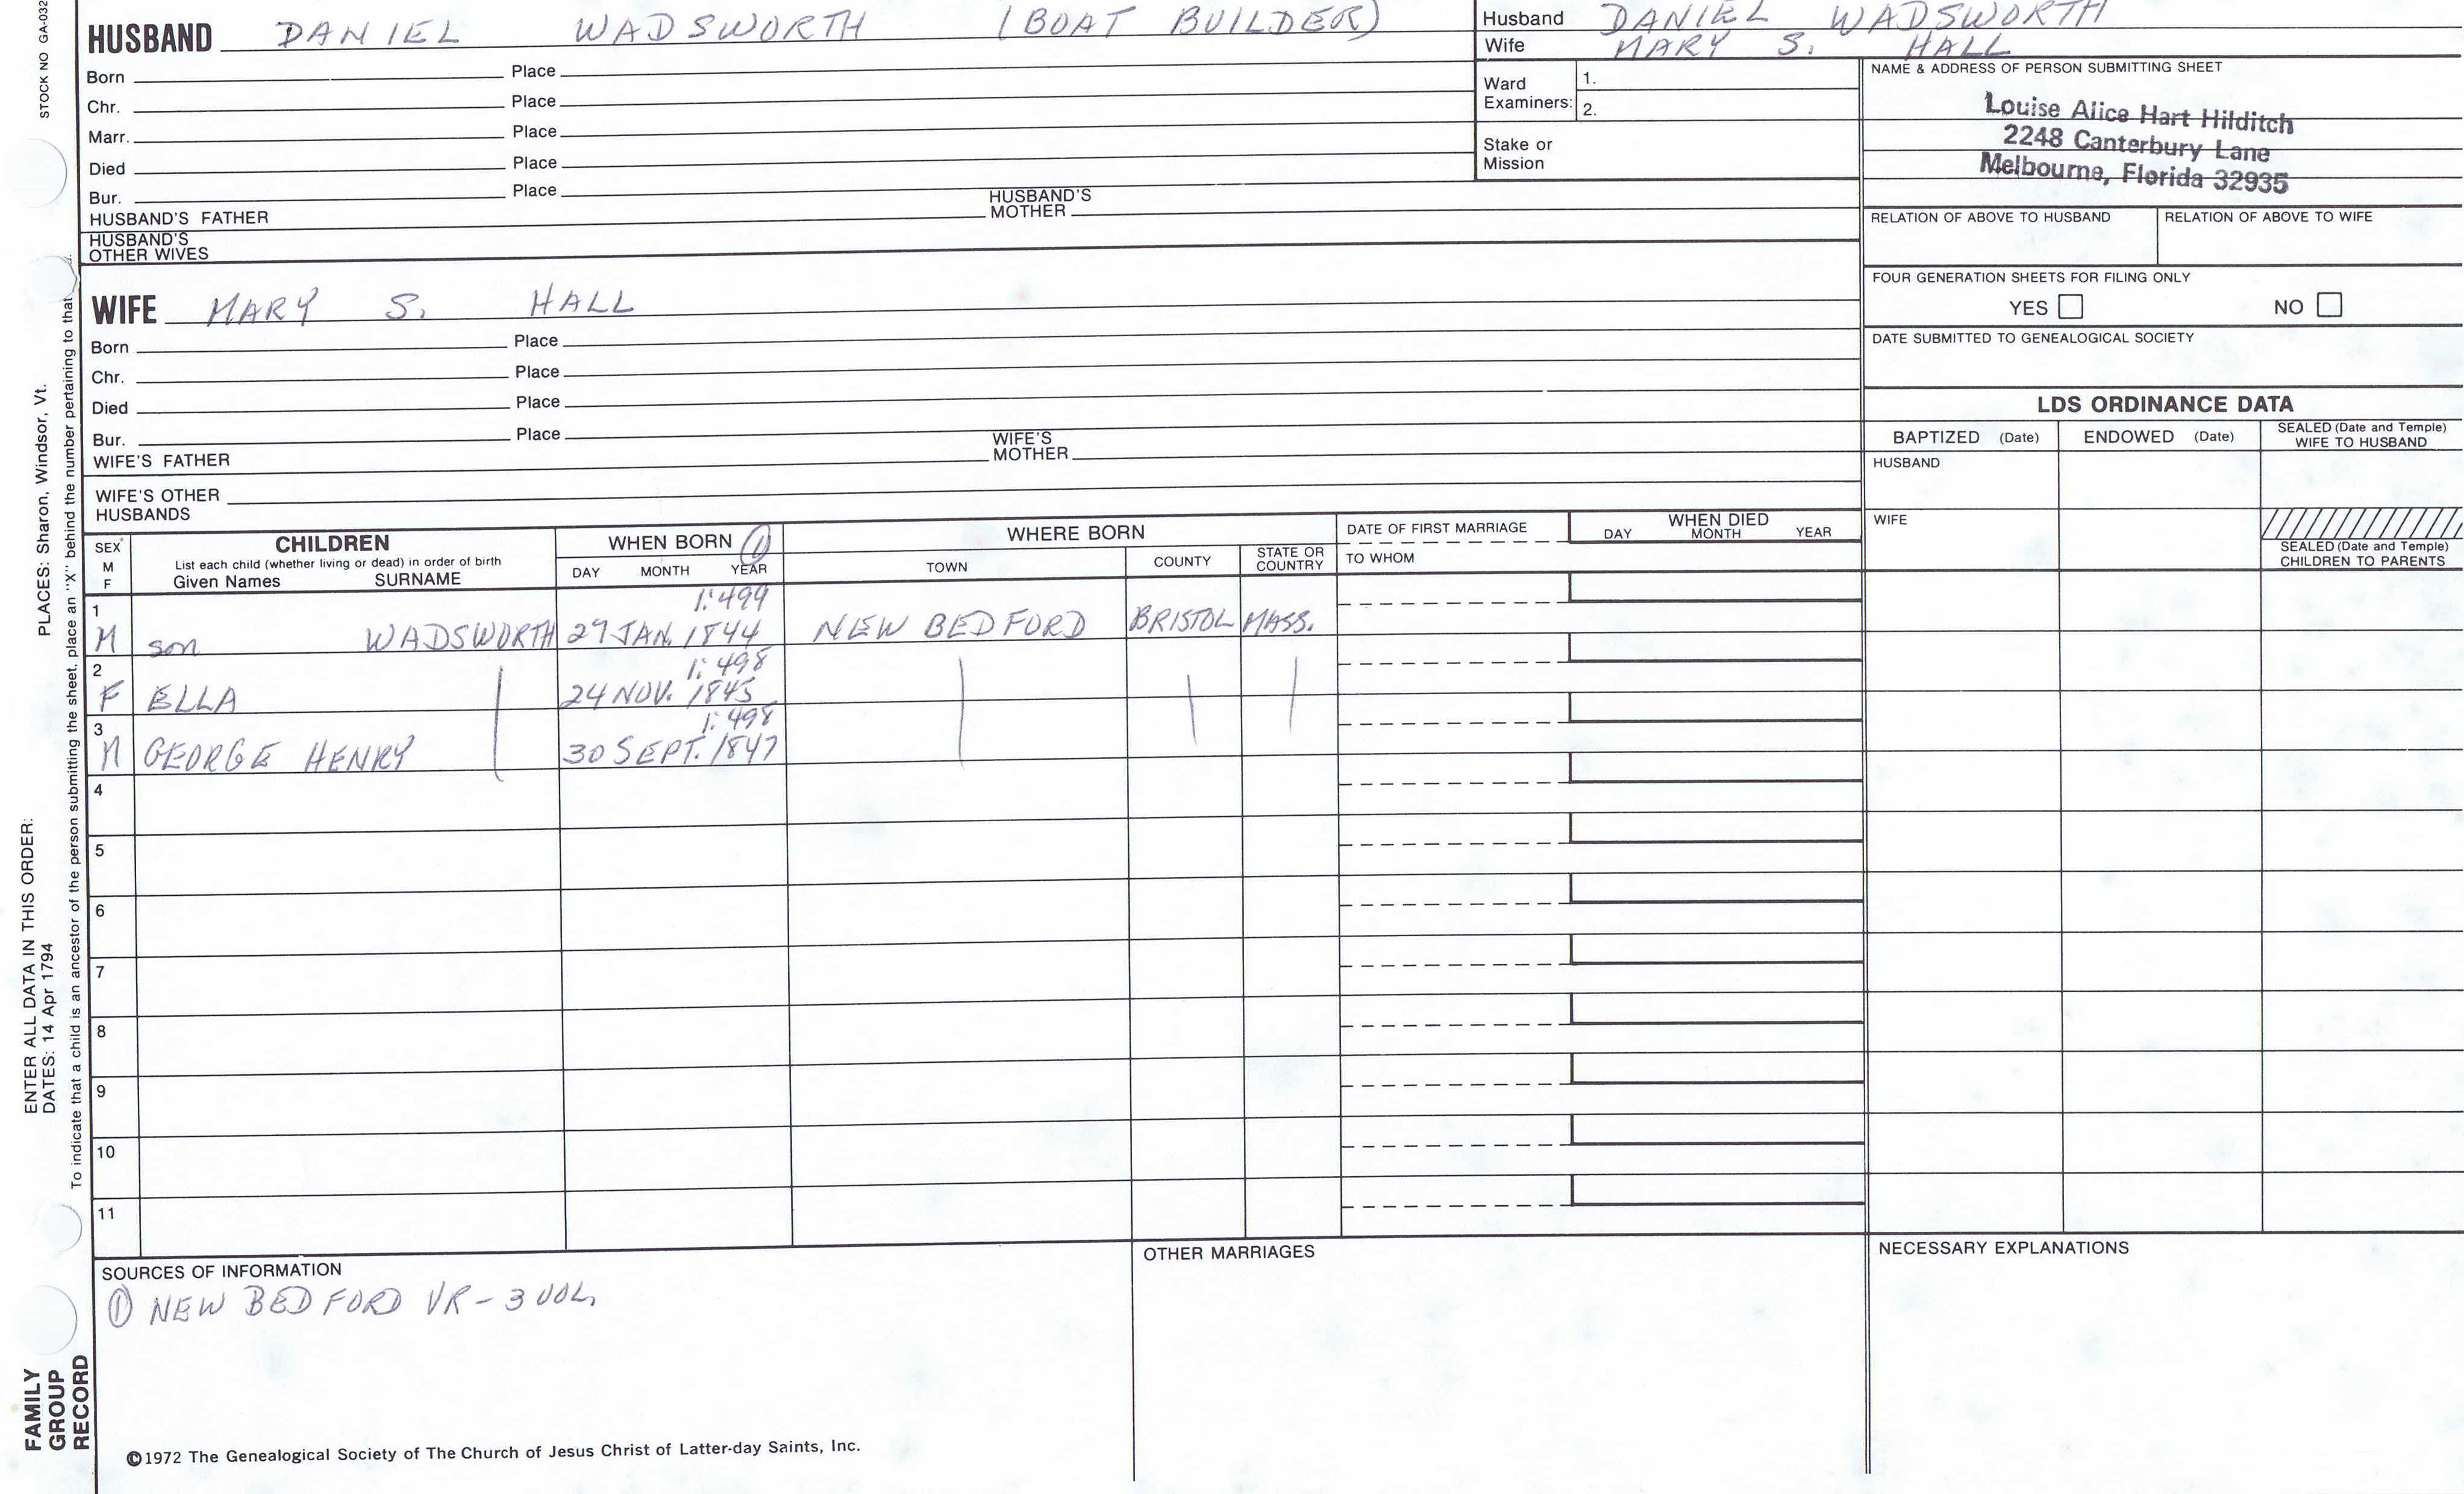 STOCK NO GA-032
HUSBAND DANIEL WADSWORTH (BOAT BUILDER)
Born Place
Chr. Place
Marr. Place
Died Place
Bur. Place
HUSBAND'S FATHER HUSBAND'S MOTHER
HUSBAND'S OTHER WIVES
Husband DANIEL WADSWORTH
Wife MARY S. HALL
Ward Examiners: 1.
2.
Stake or Mission
NAME & ADDRESS OF PERSON SUBMITTING SHEET
Louise Alice Hart Hilditch
2248 Canterbury Lane
Melbourne, Florida 32935
RELATION OF ABOVE TO HUSBAND RELATION OF ABOVE TO WIFE
FOUR GENERATION SHEETS FOR FILING ONLY
YES NO
DATE SUBMITTED TO GENEALOGICAL SOCIETY
WIFE MARY S. HALL
Born Place
Chr. Place
Died Place
Bur. Place
WIFE'S FATHER WIFE'S MOTHER
WIFE'S OTHER HUSBANDS
LDS ORDINANCE DATA
BAPTIZED (Date) ENDOWED (Date) SEALED (Date and Temple) WIFE TO HUSBAND
HUSBAND
WIFE
SEALED (Date and Temple) CHILDREN TO PARENTS
SEX M F
CHILDREN
List each child (whether living or dead) in order of birth
Given Names SURNAME
WHEN BORN (1)
DAY MONTH YEAR
WHERE BORN
TOWN COUNTY STATE OR COUNTRY
DATE OF FIRST MARRIAGE
TO WHOM
WHEN DIED
DAY MONTH YEAR
1 1:499
M son WADSWORTH 27 JAN. 1844 NEW BEDFORD BRISTOL MASS.
2 1:498
F ELLA 24 NOV. 1845
3 1:498
M GEORGE HENRY 30 SEPT. 1847
4
5
6
7
8
9
10
11
SOURCES OF INFORMATION
(1) NEW BEDFORD VR - 3 VOL.
OTHER MARRIAGES
NECESSARY EXPLANATIONS
©1972 The Genealogical Society of The Church of Jesus Christ of Latter-day Saints, Inc.
FAMILY GROUP RECORD
ENTER ALL DATA IN THIS ORDER:
DATES: 14 Apr 1794 PLACES: Sharon, Windsor, Vt.
To indicate that a child is an ancestor of the person submitting the sheet, place an "X" behind the number pertaining to that